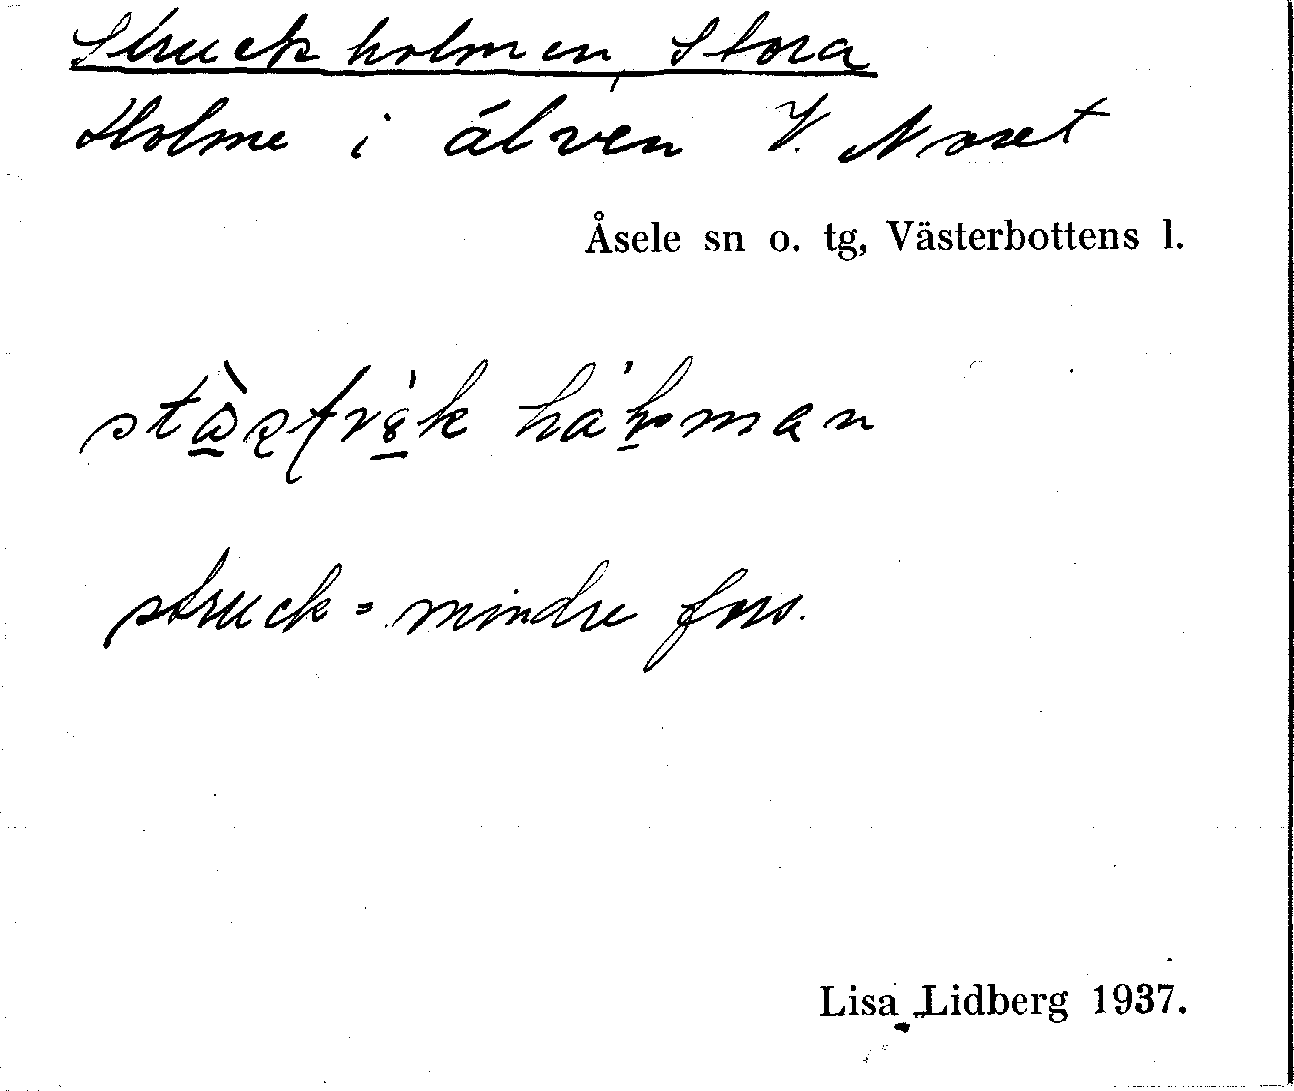 Struckholmen, Stora
Holme i älven V. Noret
Åsele sn o. tg, Västerbottens l.
struck = mindre fors.
Lisa Lidberg 1937.